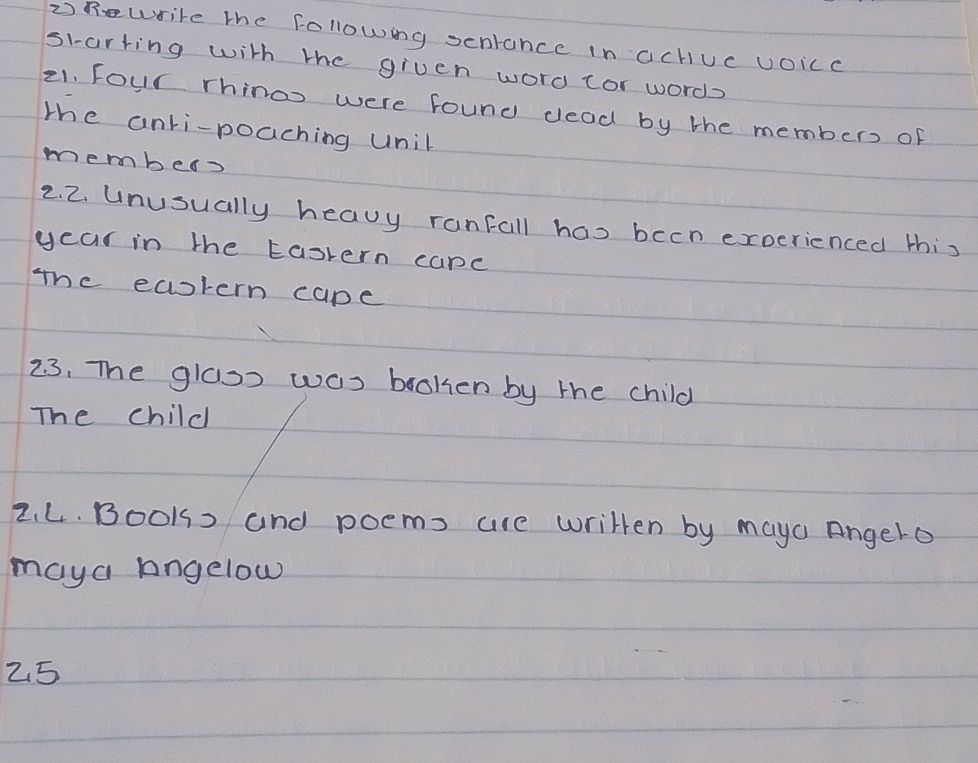 2) Rewrite the following sentance in active voice
starting with the given word (or words
21. Four rhinos were found dead by the members of
the anti-poaching unit
members
2.2. Unusually heavy ranfall has been experienced this
year in the Eastern cape
The eastern cape
23. The glass was broken by the child
The child
2.4. Books and poems are written by maya Angelo
maya Angelow
2.5